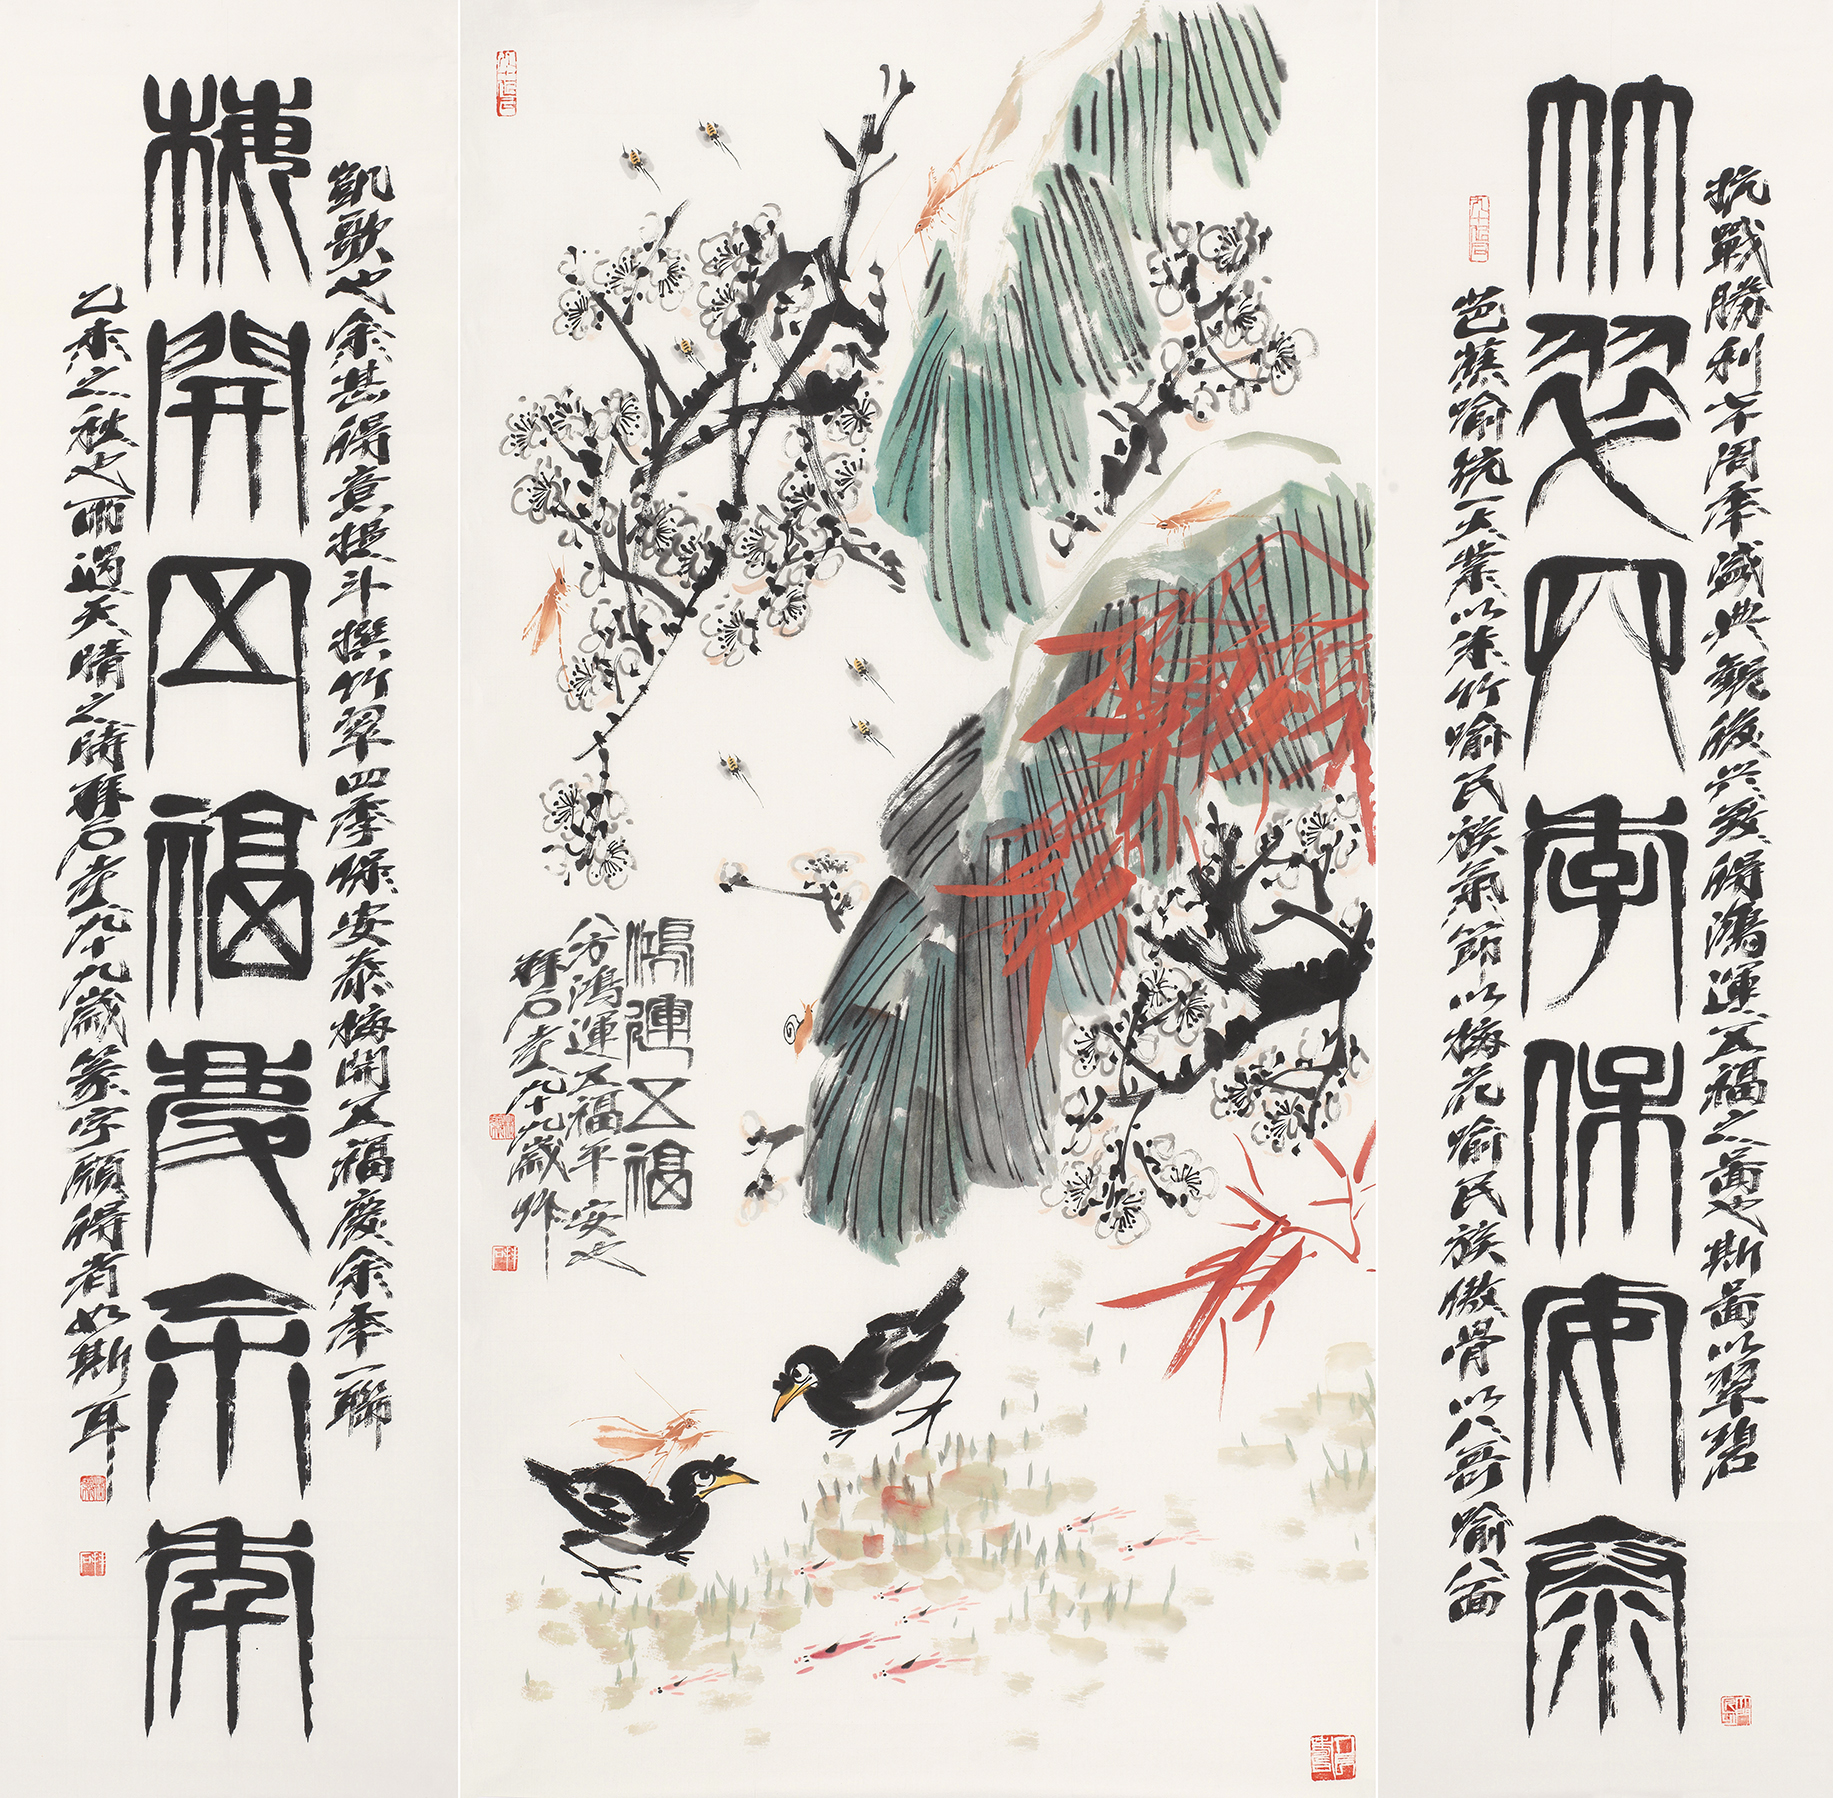 竹翠四季保安泰
抗戰勝利七十周年盛典觀後興發得鴻運五福之圖也斯圖以翠碧
芭蕉喻統一大業以朱竹喻民族氣節以梅花喻民族傲骨以八哥喻八面
鴻運五福
鴻運五福平安也
拜石老八十九歲作
凱歌也余甚得意提斗撰竹翠四季保安泰梅開五福慶余年一聯
梅開五福慶余年
乙未之秋也雨過天晴之時拜石老八十九歲篆字頗得有如斯耳